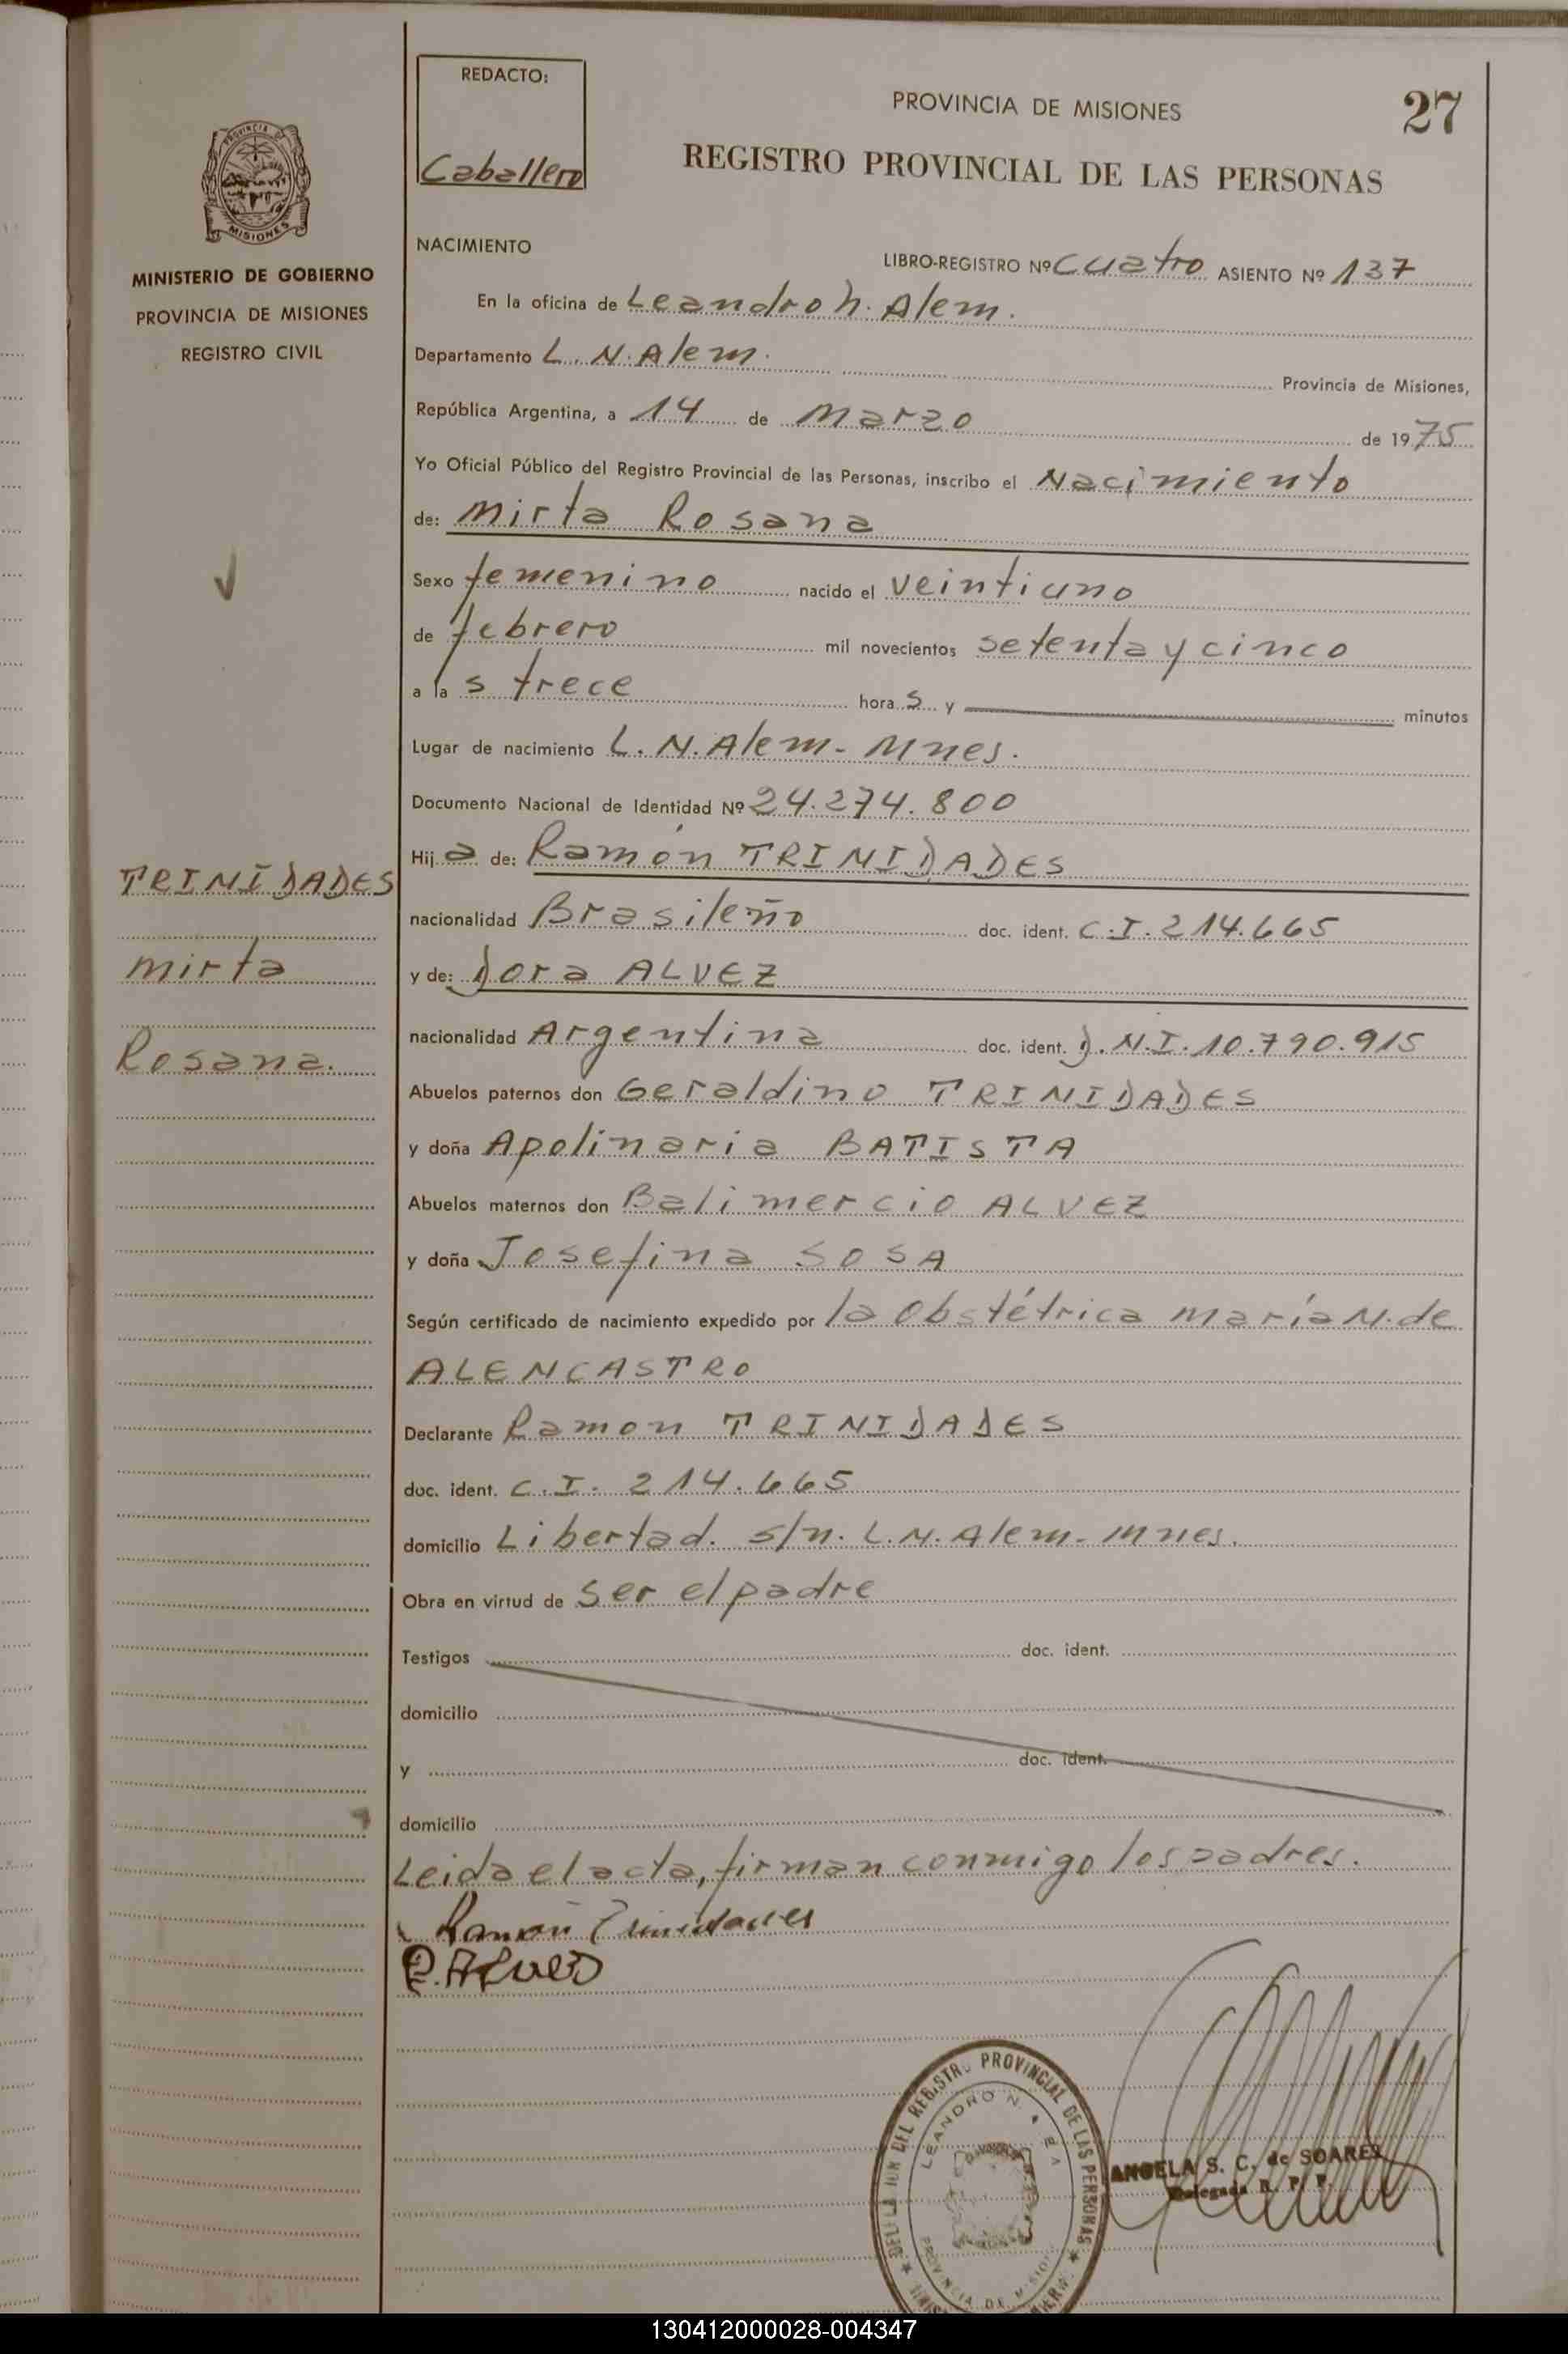 REDACTO:
Caballero
PROVINCIA DE MISIONES
27
REGISTRO PROVINCIAL DE LAS PERSONAS
PROVINCIA DE
MISIONES
MINISTERIO DE GOBIERNO
PROVINCIA DE MISIONES
REGISTRO CIVIL
NACIMIENTO
LIBRO-REGISTRO Nº Cuatro ASIENTO Nº 137
En la oficina de Leandro N. Alem.
Departamento L. N. Alem. Provincia de Misiones,
República Argentina, a 14 de Marzo de 1975
Yo Oficial Público del Registro Provincial de las Personas, inscribo el Nacimiento
de: Mirta Rosana
Sexo femenino nacido el veintiuno
de febrero mil novecientos setenta y cinco
a las trece horas y minutos
Lugar de nacimiento L. N. Alem - Mnes.
Documento Nacional de Identidad Nº 24.274.800
Hija de: Ramón TRINIDADES
nacionalidad Brasileño doc. ident. C.I. 214.665
y de: Dora ALVEZ
nacionalidad Argentina doc. ident. D.N.I. 10.790.915
Abuelos paternos don Geraldino TRINIDADES
y doña Apolinaria BATISTA
Abuelos maternos don Balimercio ALVEZ
y doña Josefina SOSA
Según certificado de nacimiento expedido por la Obstétrica María N. de
ALENCASTRO
Declarante Ramon TRINIDADES
doc. ident. C.I. 214.665
domicilio Libertad. s/n. L.N. Alem - Mnes.
Obra en virtud de Ser el padre
Testigos doc. ident.
domicilio
y doc. ident.
domicilio
Leida el acta, firman conmigo los padres.
Ramón Trinidades
TRINIDADES
Mirta
Rosana.
DEL REGISTRO PROVINCIAL DE LAS PERSONAS
LEANDRO N.
PROVINCIA DE MISIONES
ANGELA S. C. de SOARES
Delegada R. P. P.
130412000028-004347